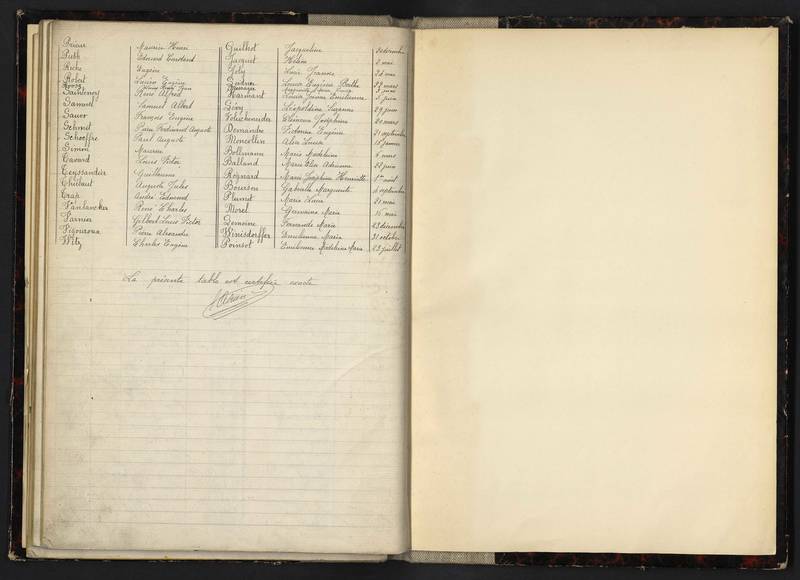 Maurice Henri Guilhot Jacqueline
Puth Edmond Gustave Jacquet Hélène 2 mai
Riche Eugène Joly
Robert Louis Eugène Louise Eugénie Berthe 22 mars
Saintenoy René Alfred Marmant Louise Emilienne 5 juin
Samuel Samuel Albert Géry Léopoldine Suzanne 29 juin
François Eugène Schickeneider Joséphine 20 mars
Schmit Pierre Ferdinand Auguste Demandre Victorine Eugénie 21 septembre
Schoeffre Paul Auguste Moncollin Alice Lucie 18 janvier
Simon Maurice Bollmann Marie Madeleine 4 mars
Louis Victor Balland Marie Adrienne 22 juin
Teyssandier Guillaume Rognard Marie Joséphine Henriette 1er août
Thiébaut Auguste Jules Bourson Gabrielle Marguerite 6 septembre
Trap André Edmond Plumet Marie Lucie 21 mai
Vanlancker René Charles Morel Germaine Marie 16 mai
Varnier Gilbert Louis Victor Lemoine Fernande Marie 23 décembre
Vigouroux Pierre Alexandre Winisdorffer Emilienne Maria 31 octobre
Witz Charles Eugène Poinsot Emilienne Madeleine Marie 23 juillet
La présente table est certifiée exacte